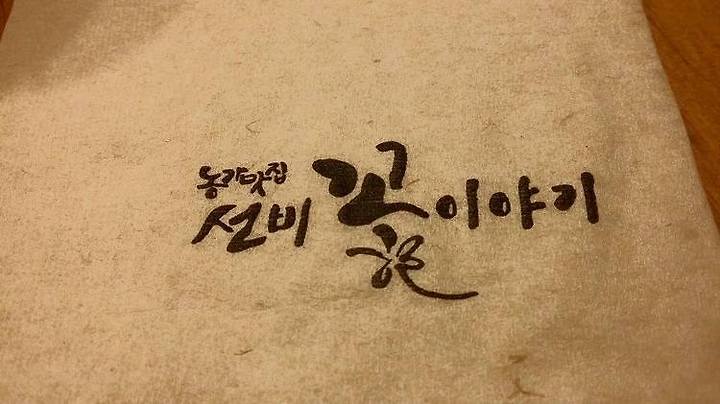 농가맛집
선비꽃이야기